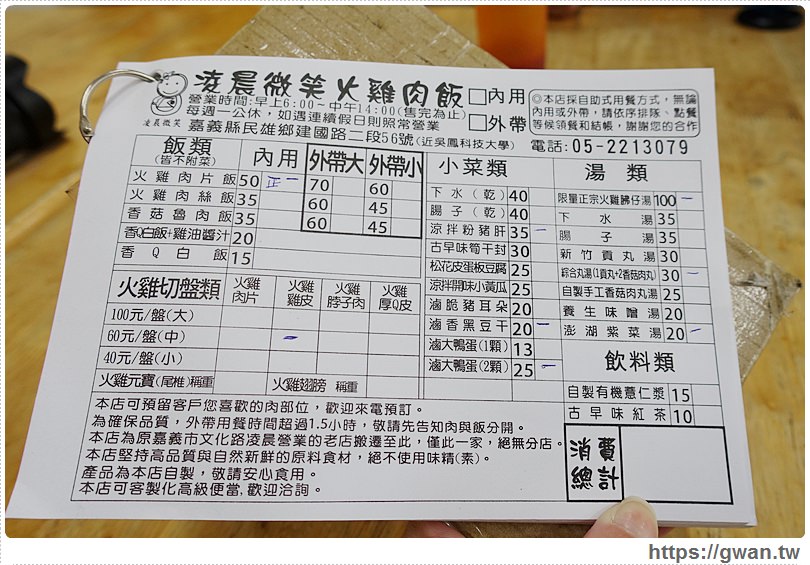 凌晨微笑火雞肉飯
凌晨微笑
營業時間:早上6:00~中午14:00(售完為止)
每週一公休,如遇連續假日則照常營業
嘉義縣民雄鄉建國路二段56號(近吳鳳科技大學)
電話:05-2213079
□內用
□外帶
◎本店採自助式用餐方式,無論
內用或外帶,請依序排隊、點餐
等候領餐和結帳,謝謝您的合作
飯類 內用 外帶大 外帶小
(皆不附菜)
火雞肉片飯 50 正一 70 60
火雞肉絲飯 35 60 45
香菇魯肉飯 35 60 45
香Q白飯+雞油醬汁 20
香Q白飯 15
火雞切盤類 火雞肉片 火雞雞皮 火雞脖子肉 火雞厚Q皮
100元/盤(大)
60元/盤(中) 一
40元/盤(小)
火雞元寶(尾椎)稱重 火雞翅膀 稱重
小菜類
下水(乾) 40
腸子(乾) 40
涼拌粉豬肝 35 一
古早味筍干封 30
松花皮蛋板豆腐 25
涼拌開味小黃瓜 25
滷脆豬耳朵 20
滷香黑豆干 20 一
滷大鴨蛋(1顆) 13
滷大鴨蛋(2顆) 25 一
湯類
限量正宗火雞佛仔湯 100 一
下水湯 35
腸子湯 35
新竹貢丸湯 30
綜合丸湯(1貢丸+2香菇肉丸) 30 一
自製手工香菇肉丸湯 25
養生味噌湯 20
澎湖紫菜湯 20 一
飲料類
自製有機薏仁漿 15
古早味紅茶 10
消費
總計
本店可預留客戶您喜歡的肉部位,歡迎來電預訂。
為確保品質,外帶用餐時間超過1.5小時,敬請先告知肉與飯分開。
本店為原嘉義市文化路凌晨營業的老店搬遷至此,僅此一家,絕無分店。
本店堅持高品質與自然新鮮的原料食材,絕不使用味精(素)。
產品為本店自製,敬請安心食用。
本店可客製化高級便當,歡迎洽詢。
https://gwan.tw